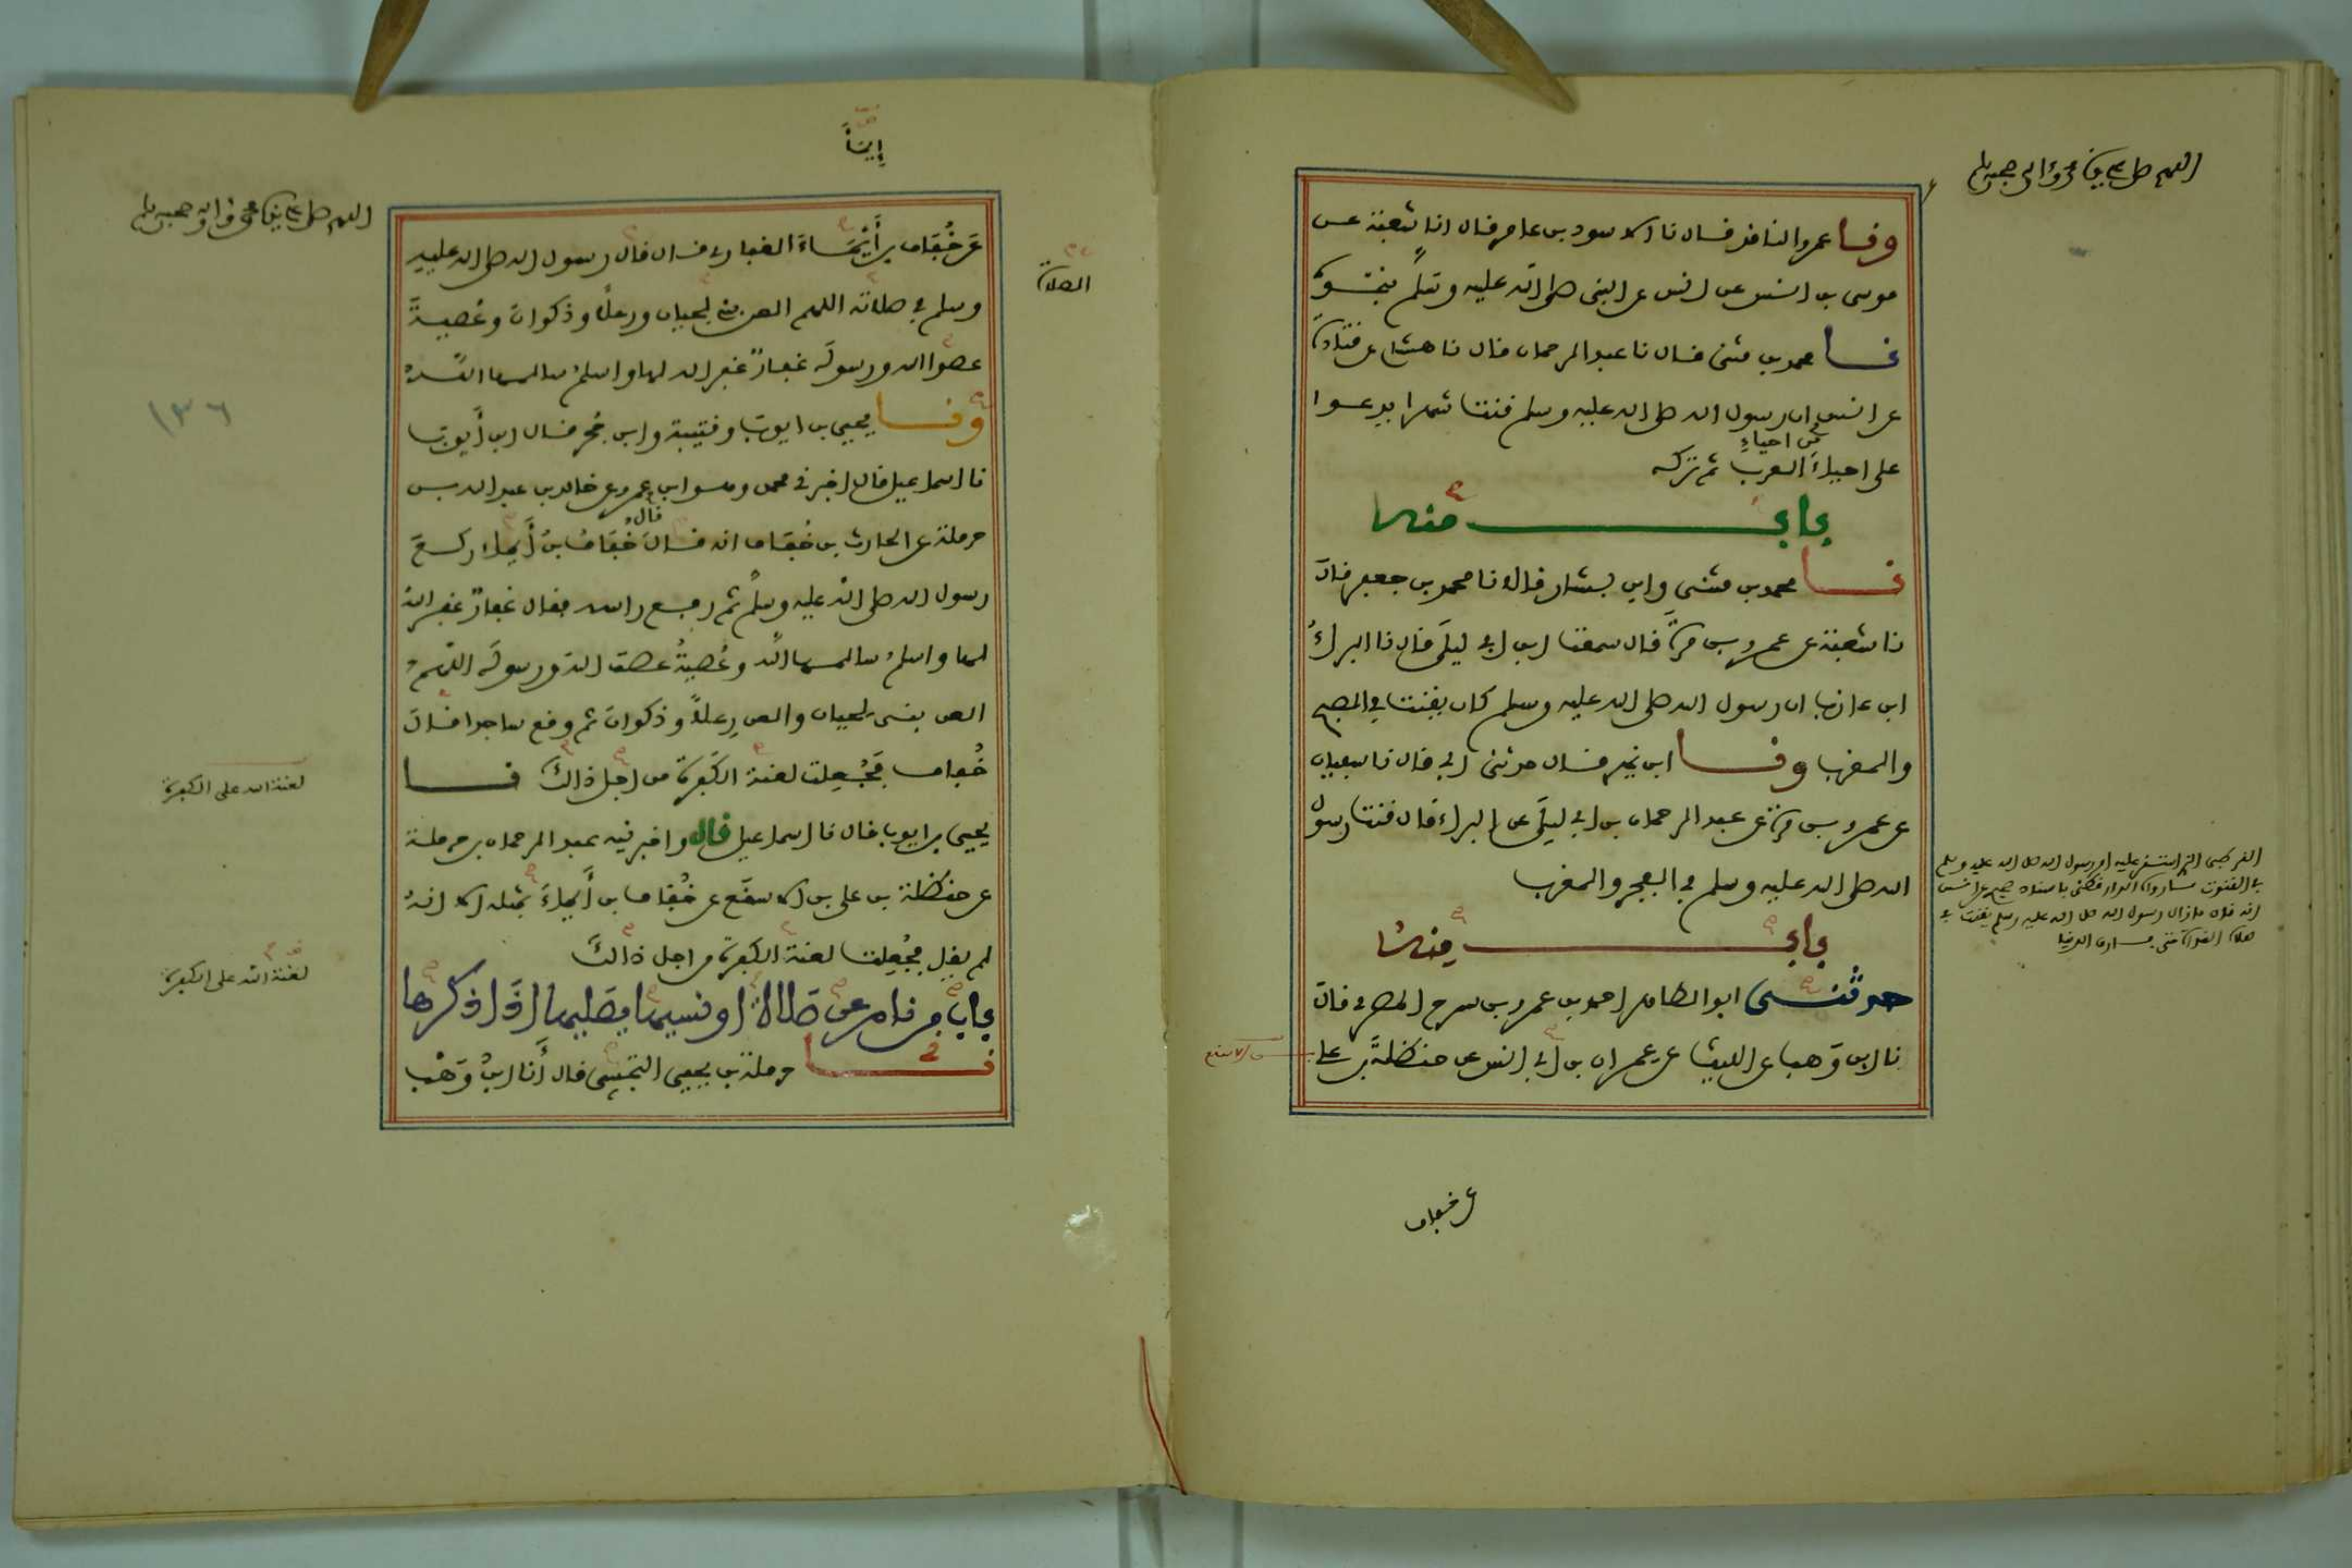 اللهم صل على نبينا محمد وآله وصحبه وسلم
ونا عمرو الناقد قال نا الاسود بن عامر قال انا شعبة عن
موسى بن انس عن انس عن النبي صلى الله عليه وسلم بنحوه
نا محمد بن مثنى قال نا عبد الرحمان قال نا هشام عن قتادة
عن انس ان رسول الله صلى الله عليه وسلم قنت شهرا يدعوا
من احياء
على احياء العرب ثم تركه
باب منه
نا محمد بن مثنى وابن بشار قالا نا محمد بن جعفر قال
نا شعبة عن عمرو بن مرة قال سمعت ابن ابي ليلى قال نا البراء
ابن عازب ان رسول الله صلى الله عليه وسلم كان يقنت في الصبح
والمغرب ونا ابن نمير قال حدثني ابي قال نا سفيان
عن عمرو بن مرة عن عبد الرحمان بن ابي ليلى عن البراء قال قنت رسول
الله صلى الله عليه وسلم في الفجر والمغرب
باب منه
حدثني ابو الطاهر احمد بن عمرو بن سرح المصري قال
نا ابن وَهب عن الليث عن عمران بن ابي انس عن حنظلة بن علي
بن الاسقع
القرطبي الذي استقر عليه امر رسول الله صلى الله عليه وسلم
في القنوت ما رواه الدارقطني باسناد صحيح عن انس
انه قال ما زال رسول الله صلى الله عليه وسلم يقنت في
صلاة الغداة حتى فارق الدنيا
عن خفاف
إيمَاءَ
اللهم صل على نبينا محمد وآله وصحبه وسلم
الصلاة
عَن خُفَاف بن أيْمَاءَ الغفاري قال قال رسول الله صلى الله عليه
وسلم في صلاته اللهم العن بني لحيان ورعلاً وذكوان وعُصيةَ
عصوا الله ورسولَه غفارٌ غفر الله لها واسلمُ سالمها اللهُ
ونا يحيى بن ايوب وقتيبة وابن حُجر قال ابن أيوب
نا اسماعيل قال اخبرني محمد وهو ابن عمرو عن خالد بن عبد الله بن
قال
حرملة عن الحارث بن خُفاف انه قال خُفَافُ بنُ أَيماء ركع
رسول الله صلى الله عليه وسلم ثم رفع راسه فقال غفارٌ غفر الله
لها واسلمُ سالمها الله وعُصيةُ عصت الله ورسولَه اللهم
العن بني لحيان والعن رِعلاً وذكوانَ ثم وقع ساجدا قال
خُفاف فَجُعِلت لعنة الكَفرة من اجل ذالكَ نا
لعنة الله على الكفرة
يحيى بن ايوب قال نا اسماعيل قال واخبرنيه عبد الرحمان بن حرملة
عن حنظلة بن علي بن الاسقَع عن خُفاف بن أَيماءَ بمثله الا انهُ
لم يقل فجُعِلت لعنة الكفرة من اجل ذالكَ
لعنة الله على الكفرة
باب من نام عن صَلاة او نسيها فيصَليها اذَا ذكرها
نا حرملة بن يحيى التجيبي قال أَنا ابنُ وَهْب
١٣٦